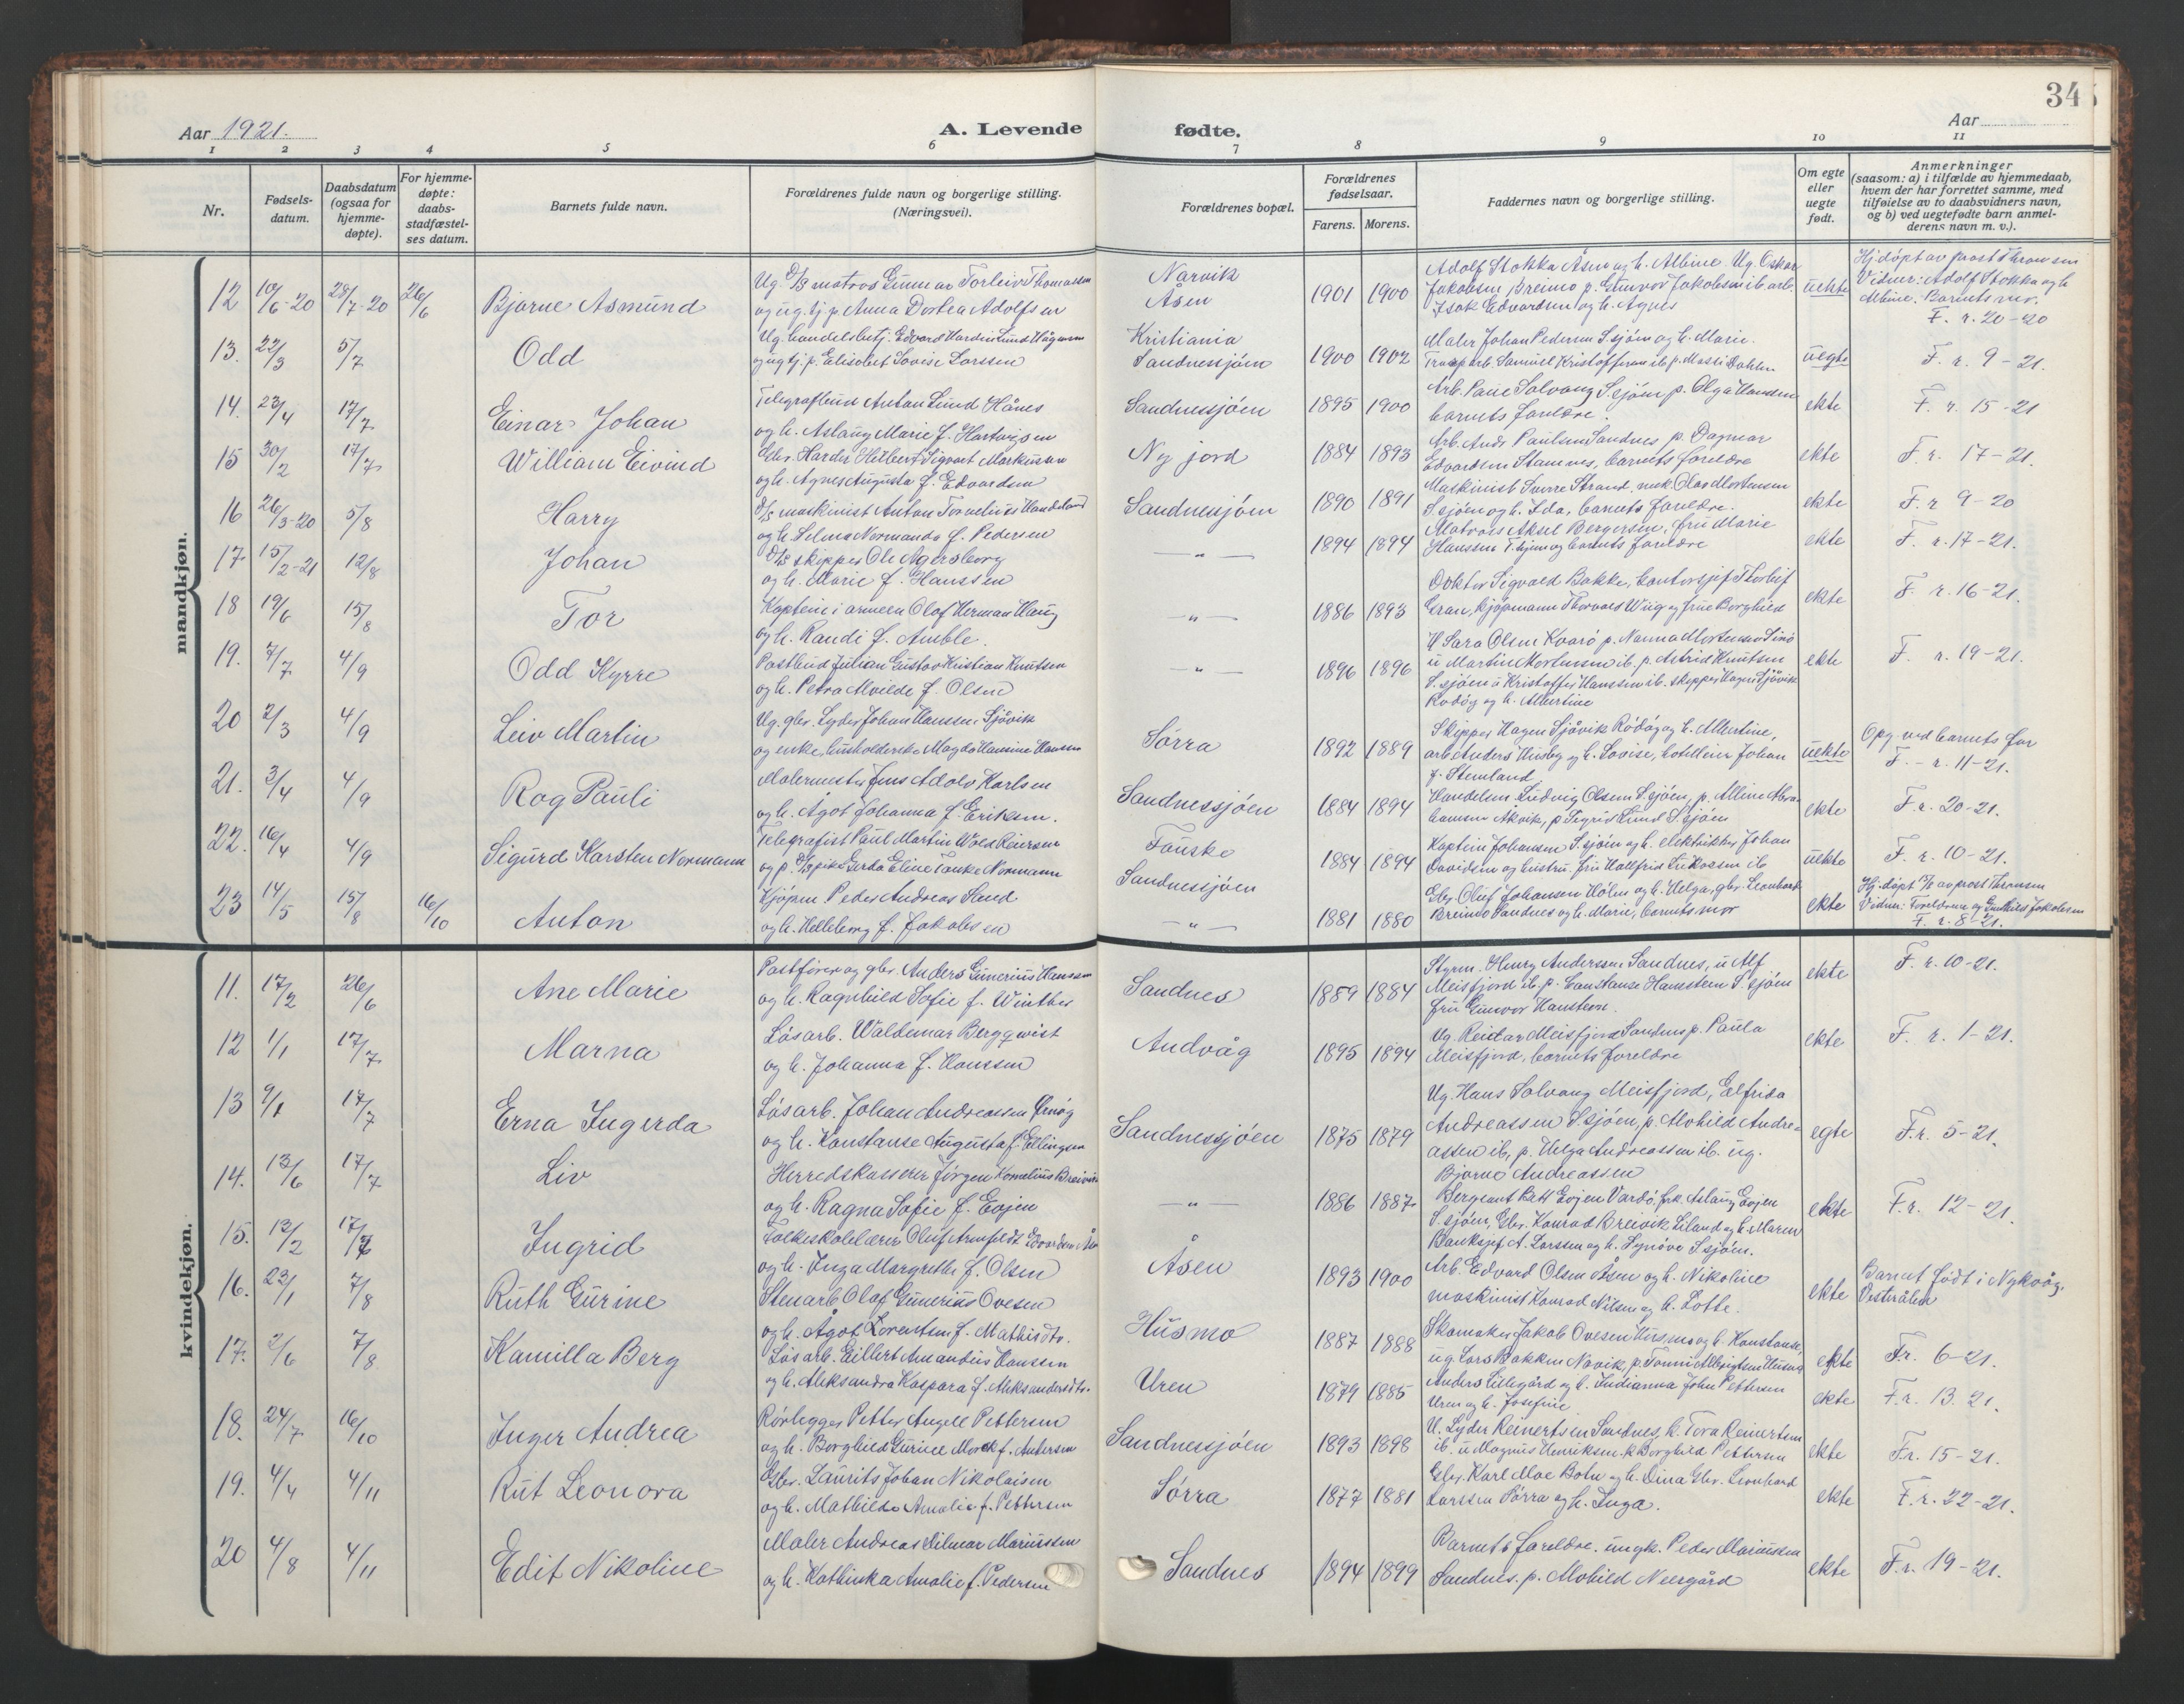 Aar 1921.
A. Levende fødte.
34
Aar
1 2 3 4 5 6 7 8 9 10 11
Nr.
Fødsels-datum.
Daabsdatum (ogsaa for hjemme-døpte).
For hjemme-døpte: daabs-stadfæstel-ses datum.
Barnets fulde navn.
Forældrenes fulde navn og borgerlige stilling. (Næringsvei).
Forældrenes bopæl.
Forældrenes fødselsaar.
Farens. Morens.
Faddernes navn og borgerlige stilling.
Om egte eller uegte født.
Anmerkninger
(saasom: a) i tilfælde av hjemmedaab, hvem der har forrettet samme, med tilføielse av to daabsvidners navn, og b) ved uegtefødte barn anmel-derens navn m. v.).
mandkjøn.
12 10/6-20 28/7-20 26/6 Bjarne Asmund
og ug. tj. p. Anna Dortea Adolfsen
Narvik
Åsen
1901 1900
Adolf Stokka Åsen og h. Albine. Ug. Oskar
Isak Edvardsen og h. Agnes
uekte
Vidner: Adolf Stokka og h.
Albine. Barnets mor.
F. r. 20-20
13. 22/3 5/7 Odd
og ug tj. p. Elisabet Lovise Larssen
Kristiania
Sandnessjøen
1900 1902
Maler Johan Pedersen S.sjøen og h. Marie.
uegte
F. r. 9-21.
14. 23/4 17/7 Einar Johan
Telegrafbud Anton Lund Hånes
og h. Aslaug Marie f. Hartvigsen
Sandnessjøen
1895 1900
S.sjøen p. Olga Hanssen
barnets foreldre.
ekte
F. r. 15-21
15 30/2 17/7 William Eivind
og h. Agnes Augusta f. Edvardsen
Ny jord
1884 1893
Arb. Andr. Paulsen Sandnes p. Dagmar
Edvardsen Stamnes, barnets foreldre
ekte
F. r. 17-21.
16 26/3-20 5/8 Harry
og h. Selma Normanda f. Pedersen
Sandnessjøen
1890 1891
Maskinist Sverre Strand, ungk. Olav Mortensen
S.sjøen og h. Ida, barnets foreldre.
ekte
F. r 9-20
17. 15/2-21 12/8 Johan
D/s skipper Ole Agersborg
og h. Marie f. Hanssen
— " —
1894 1894
Matros Aksel Bergersen, fru Marie
Hanssen T.sjøen og barnets foreldre
ekte
F. r. 17-21.
18 19/6 15/8 Tor
Kaptein i armeen Olaf Herman Haug
og h. Randi f. Amble.
— " —
1886 1893
Doktor Sigvald Bakke, kontorsjef Thorleif
Gran, kjøpmann Thorvald Wiig og frue Borghild
ekte
F. r. 16-21.
19. 7/7 4/9 Odd Kyrre
Postbud Julian Gustav Kristian Knutsen
og h. Petra Alvilde f. Olsen
— " —
1896 1896
u Martin Mortensen ib. p. Astrid Knutsen
S.sjøen u Kristoffer Hanssen ib. skipper Hagen Sjåvik
Rødøy og h. Albertine
ekte
F. r. 19-21.
20 2/3 4/9 Leiv Martin
Ug. gbr. Lyder Johan Hanssen Sjåvik
og enke, husholderske Magda Hansine Hansen
Sørra
1892 1889
Skipper Hagen Sjåvik Rødøy og h. Albertine,
arb. Anders Husby og h. Lovise, hotelleier Johan
f. Stemland.
uekte
Opg. ved barnets far
F. - r. 11-21.
21. 3/4 4/9 Rag Pauli
Malermester Jens Adolv Karlsen
og h. Ågot Johanna f. Eriksen.
Sandnessjøen
1884 1894
Handelsm. Ludvig Olsen S.sjøen, p. Alline Abra-
hamsen Akvik, p. Sigrid Lund S.sjøen
ekte
F. r. 20-21.
22. 16/4 4/9 Sigurd Karsten Normann
Telegrafist Paul Martin Wold Reiersen
og p. D/s pike Gerda Eline Tanke Normann
Fauske
Sandnessjøen
1884 1894
Kaptein Johansen S.sjøen og h. elektriker Johan
Davidsen og hustru, fru Hallfrid Eriksen ib
uekte
F. r. 10-21.
23 14/5 15/8 16/10 Anton
Kjøpm. Peder Andreas Sund
og h. Helleborg f. Jakobsen
— " —
1881 1880
Gbr. Oluf Johansen Holm og h. Helga, gbr. Leonhard
Breimo Sandnes og h. Marie, barnets mor
ekte
Vidner: Foreldrene og Jakobsen
F. r. 8-21.
kvindekjøn.
11. 17/2 26/6 Ane Marie
Postfører og gbr. Anders Gunerius Hanssen
og h. Ragnhild Sofie f. Winther
Sandnes
1889 1884
Styrm. Henry Andersen Sandnes, u Alf
Meisfjord ib. p. Constanse Hamstein S.sjøen
fru Gunvor Hanssen.
ekte
F. r. 10-21.
12 1/1 17/7 Marna
Løsarb. Waldemar Bergqvist
og h. Johanna f. Hanssen
Andvåg
1895 1894
Ug. Reidar Meisfjord Sandnes p. Paula
Meisfjord, barnets foreldre
ekte
F. r. 1-21.
13 9/1 17/7 Erna Ingerda
Løsarb. Johan Andreassen
og h. Konstanse Augusta f. Ellingsen
Sandnessjøen
1875 1879
Ug. Hans Solvang Meisfjord, Elfrida
Andreassen S.sjøen, p. Alvhild Andre-
assen ib, p. Helga Andreassen ib. ug.
Bjarne Andreassen
egte
F.r. 5-21.
14. 13/6 17/7 Liv
Herredskasserer Jørgen Kornelius Breivik
og h. Ragna Sofie f. Evjen
— " —
1886 1887
Sergeant Batt Evjen Vardø, frk. Aslaug Evjen
S.sjøen, Gbr. Konrad Breivik Leland og h. Maren
Banksjef A. Larssen og h. Synøve S.sjøen.
ekte
F.r. 12-21.
15. 13/2 17/7 Ingrid
Folkeskolelærer Oluf Arnfeldt Edvardsen
og h. Inga Margrethe f. Olsen
Åsen
1893 1900
Arb. Edvard Olsen Åsen og h. Nikoline
maskinist Konrad Nilsen og h. Lotte.
ekte
Barnet født i Nykvåg,
Vesterålen
16. 23/1 7/8 Ruth Gurine
Stenarb. Olaf Gunerius Ovesen
og h. Ågot Lorentsen f. Mathisdtr.
Husmo
1887 1888
Skomaker Jakob Ovesen Husmo og h. Konstanse,
ekte
F.r. 6-21.
17. 2/6 7/8 Kamilla Berg
Løsarb. Eillert Amandus Hanssen
og h. Aleksandra Kaspara f. Aleksandersdtr.
Uren
1879 1885
Anders Lillegård og h. Indianna John Pettersen
Uren og h. Josefine
ekte
F.r. 13. 21.
18. 24/7 16/10 Inger Andrea
Rørlegger Petter Angell Pettersen
og h. Borghild Gurine Marek f. Andersen
Sandnessjøen
1893 1898
U. Lyder Reinertsen Sandnes, k. Tora Reinertsen
ib. u Magnus Henriksen. k Borghild Pettersen
ekte
F.r. 15-21.
19. 4/4 4/11 Rut Leonora
Gbr. Laurits Johan Nikolaisen
og h. Mathilde Amalie f. Pettersen
Sørra
1877 1881
Gbr. Karl Moe Botn og h. Dina Gbr. Leonhard
Larssen Sørra og h. Inga.
ekte
F.r. 22-21.
20 4/8 4/11 Edit Nikoline
Maler Andreas Hilmar Mariussen
og h. Kathinka Amalie f. Pedersen
Sandnes
1894 1899
Barnets foreldre. ungk. Peder Mariussen
Sandnes. p. Alvhild Neergård
ekte
F.r. 19-21.